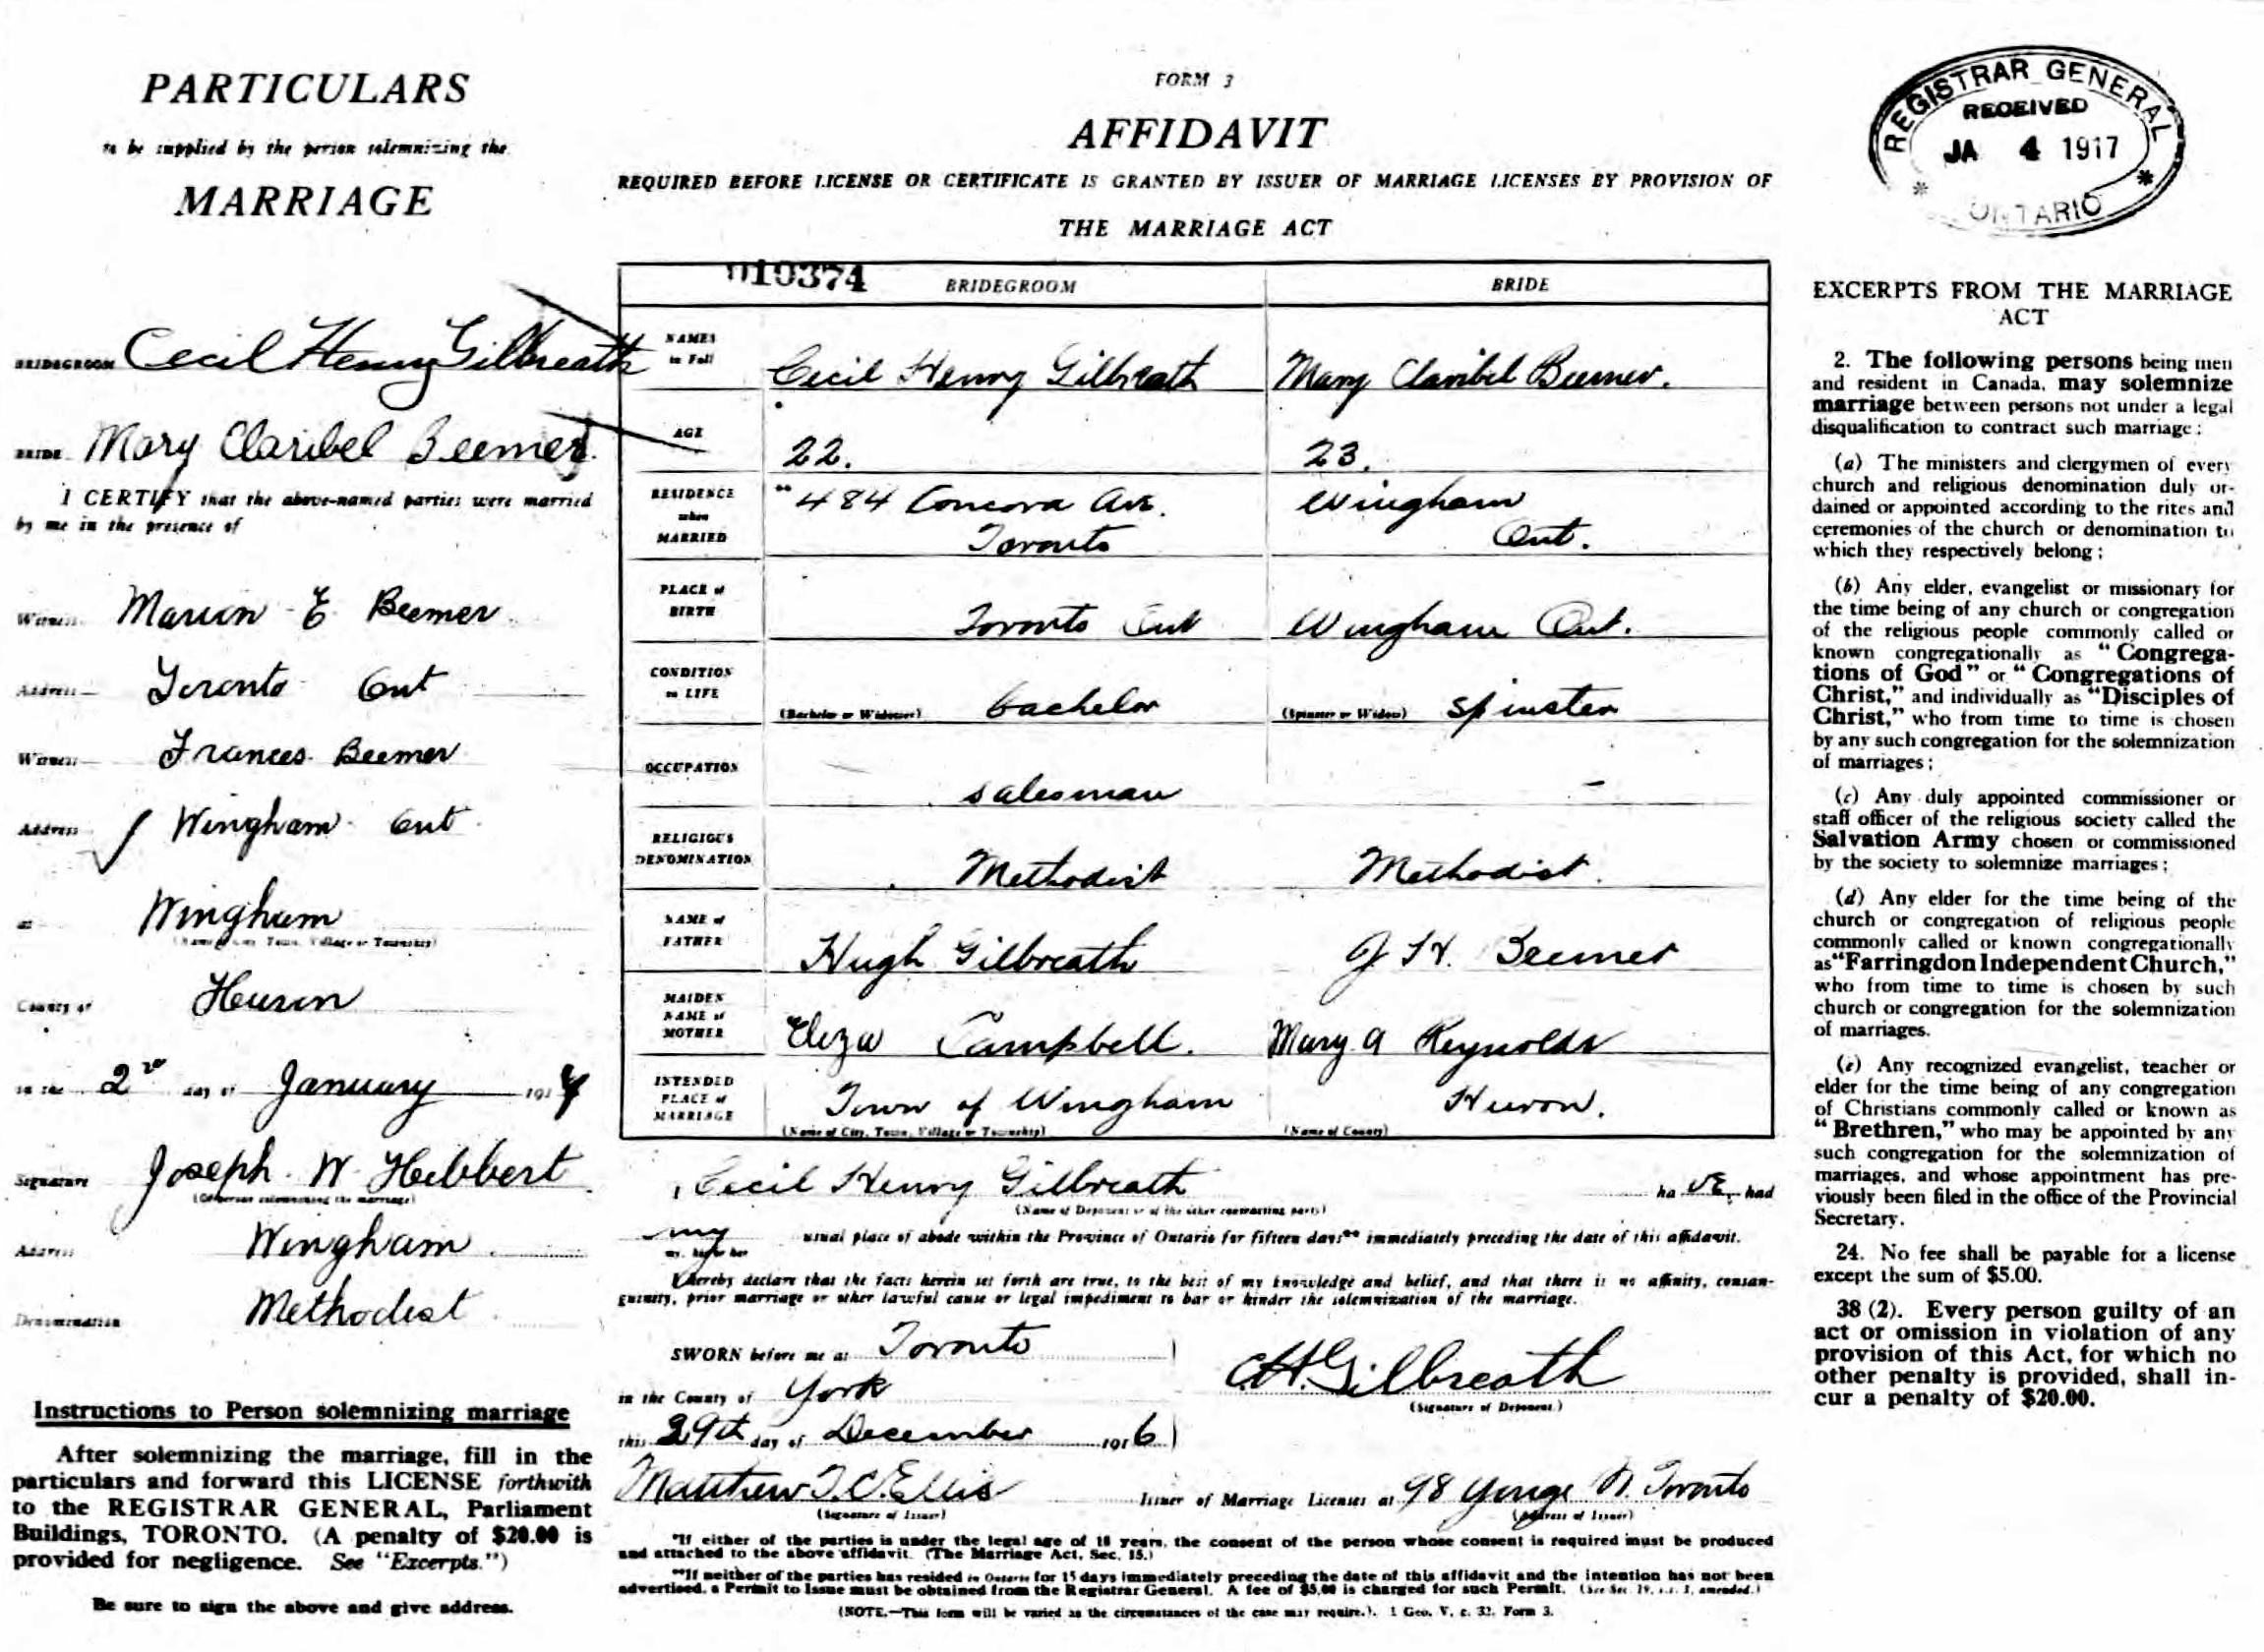 PARTICULARS
to be supplied by the person solemnizing the
MARRIAGE
BRIDEGROOM Cecil Henry Gilbreath
BRIDE Mary Claribel Beemer.
I CERTIFY that the above-named parties were married
by me in the presence of
Witness Marion E Beemer
Address Toronto Ont
Witness Frances Beemer
Address Wingham Ont
at Wingham
(Name of City, Town, Village or Township)
County of Huron
on the 2nd day of January 191
Signature Joseph. W. Hibbert
(Of person solemnizing the marriage)
Address Wingham
Denomination Methodist
Instructions to Person solemnizing marriage
After solemnizing the marriage, fill in the
particulars and forward this LICENSE forthwith
to the REGISTRAR GENERAL, Parliament
Buildings, TORONTO. (A penalty of $20.00 is
provided for negligence. See "Excerpts.")
Be sure to sign the above and give address.
FORM 3
AFFIDAVIT
REQUIRED BEFORE LICENSE OR CERTIFICATE IS GRANTED BY ISSUER OF MARRIAGE LICENSES BY PROVISION OF
THE MARRIAGE ACT
010374 BRIDEGROOM BRIDE
NAMES in Full Cecil Henry Gilbreath Mary Claribel Beemer.
AGE 22. 23.
RESIDENCE when MARRIED 484 Concord Ave. Toronto Wingham Ont.
PLACE of BIRTH Toronto Ont Wingham Ont.
CONDITION in LIFE (Bachelor or Widower) bachelor (Spinster or Widow) spinster
OCCUPATION salesman -
RELIGIOUS DENOMINATION Methodist Methodist.
NAME of FATHER Hugh Gilbreath J H. Beemer
MAIDEN NAME of MOTHER Eliza Campbell. Mary A Reynolds
INTENDED PLACE of MARRIAGE Town of Wingham Huron.
(Name of City, Town, Village or Township) (Name of County)
I, Cecil Henry Gilbreath have had
(Name of Deponent or of the other contracting party)
my usual place of abode within the Province of Ontario for fifteen days** immediately preceding the date of this affidavit.
my, his or her
I hereby declare that the facts herein set forth are true, to the best of my knowledge and belief, and that there is no affinity, consan-
guinity, prior marriage or other lawful cause or legal impediment to bar or hinder the solemnization of the marriage.
SWORN before me at Toronto
in the County of York
this 29th day of December 1916
C.H. Gilbreath
(Signature of Deponent.)
Matthew T. C. Ellis Issuer of Marriage Licenses at 98 Yonge N. Toronto
(Signature of Issuer) (Address of Issuer)
*If either of the parties is under the legal age of 18 years, the consent of the person whose consent is required must be produced
and attached to the above affidavit. (The Marriage Act, Sec. 15.)
**If neither of the parties has resided in Ontario for 15 days immediately preceding the date of this affidavit and the intention has not been
advertised, a Permit to Issue must be obtained from the Registrar General. A fee of $5.00 is charged for such Permit. (See Sec. 19, s.s. 3, amended.)
(NOTE.—This form will be varied as the circumstances of the case may require.). 1 Geo. V. c. 32. Form 3.
REGISTRAR GENERAL
RECEIVED
JA 4 1917
ONTARIO
EXCERPTS FROM THE MARRIAGE
ACT
2. The following persons being men
and resident in Canada, may solemnize
marriage between persons not under a legal
disqualification to contract such marriage:
(a) The ministers and clergymen of every
church and religious denomination duly or-
dained or appointed according to the rites and
ceremonies of the church or denomination to
which they respectively belong;
(b) Any elder, evangelist or missionary for
the time being of any church or congregation
of the religious people commonly called or
known congregationally as "Congrega-
tions of God" or "Congregations of
Christ," and individually as "Disciples of
Christ," who from time to time is chosen
by any such congregation for the solemnization
of marriages;
(c) Any duly appointed commissioner or
staff officer of the religious society called the
Salvation Army chosen or commissioned
by the society to solemnize marriages;
(d) Any elder for the time being of the
church or congregation of religious people
commonly called or known congregationally
as "Farringdon Independent Church,"
who from time to time is chosen by such
church or congregation for the solemnization
of marriages.
(e) Any recognized evangelist, teacher or
elder for the time being of any congregation
of Christians commonly called or known as
"Brethren," who may be appointed by any
such congregation for the solemnization of
marriages, and whose appointment has pre-
viously been filed in the office of the Provincial
Secretary.
24. No fee shall be payable for a license
except the sum of $5.00.
38 (2). Every person guilty of an
act or omission in violation of any
provision of this Act, for which no
other penalty is provided, shall in-
cur a penalty of $20.00.